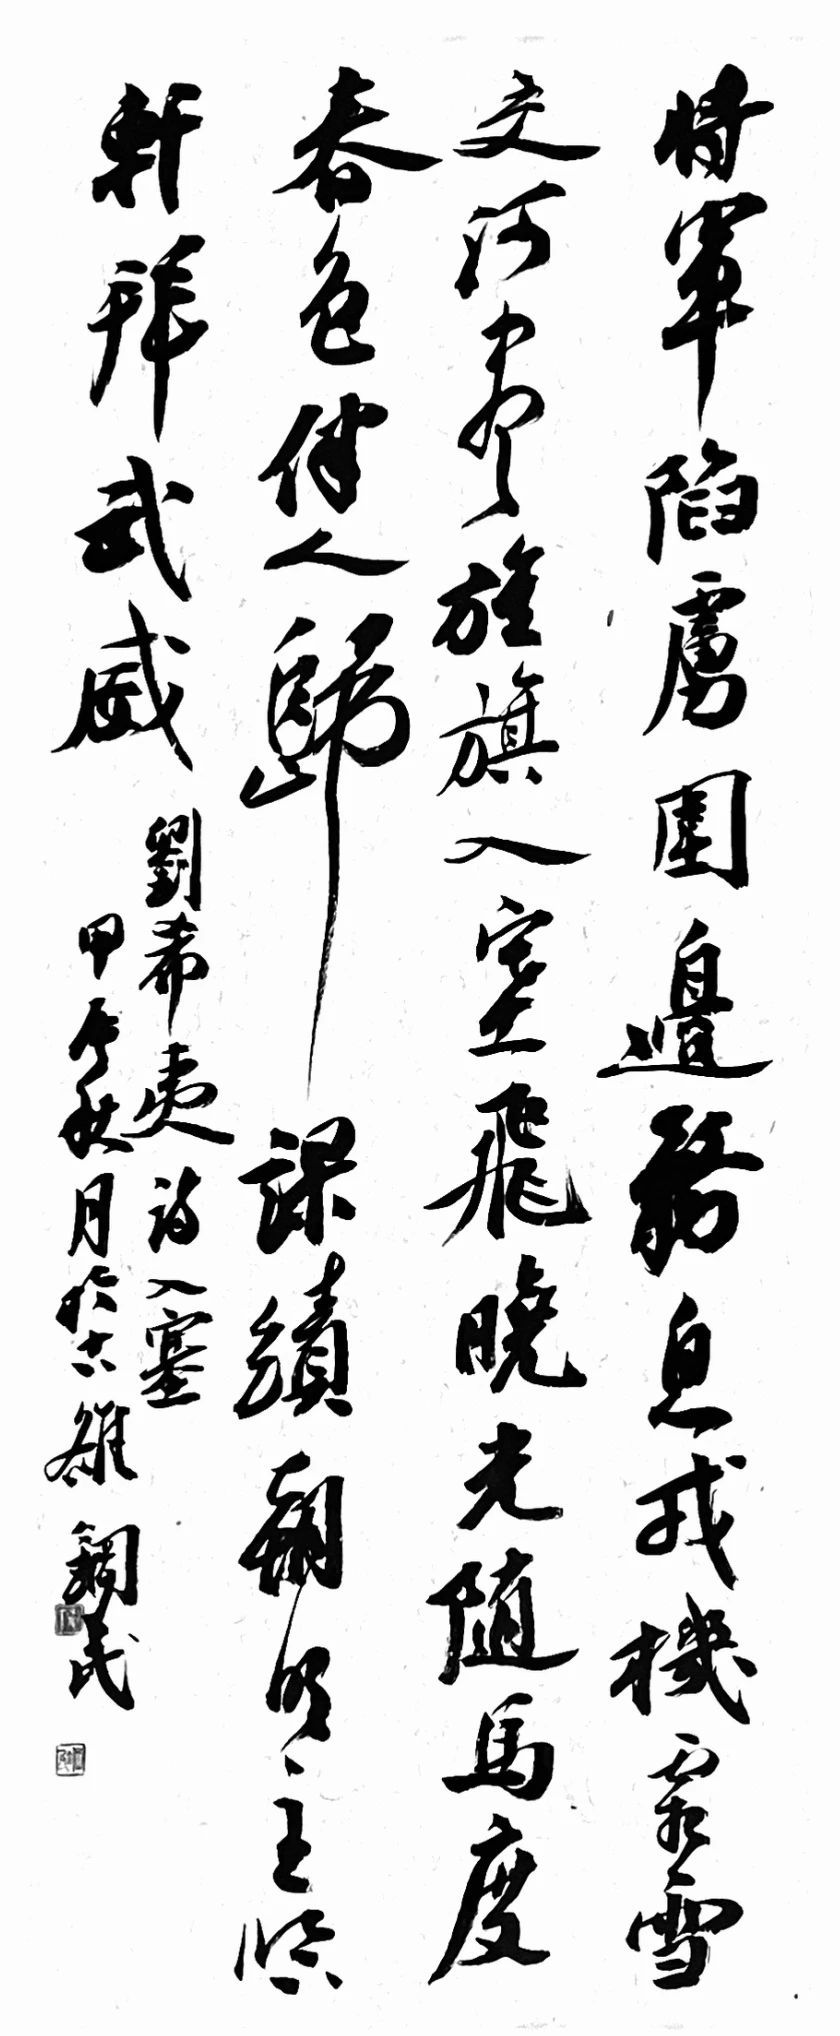 將軍陷虜圍邊務息戎機霜雪
交河盡旌旗入塞飛曉光隨馬度
春色伴人歸課績朝明主臨
軒拜武威
劉希夷詩入塞
甲辰秋月於古雒 鋼民